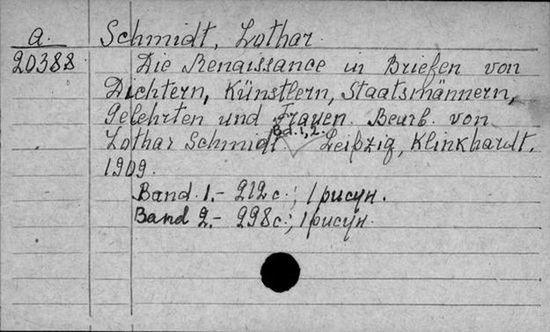 a. Schmidt, Lothar.
20388 Die Renaissance in Briefen von
Dichtern, Künstlern, Staatsmännern,
Gelehrten und Frauen. Bearb. von
Bd. 1, 2.
Lothar Schmidt Leipzig, Klinkhardt.
1909.
Band 1.- 212 с.; 1 рисун.
Band 2.- 298 с.; 1 рисун.